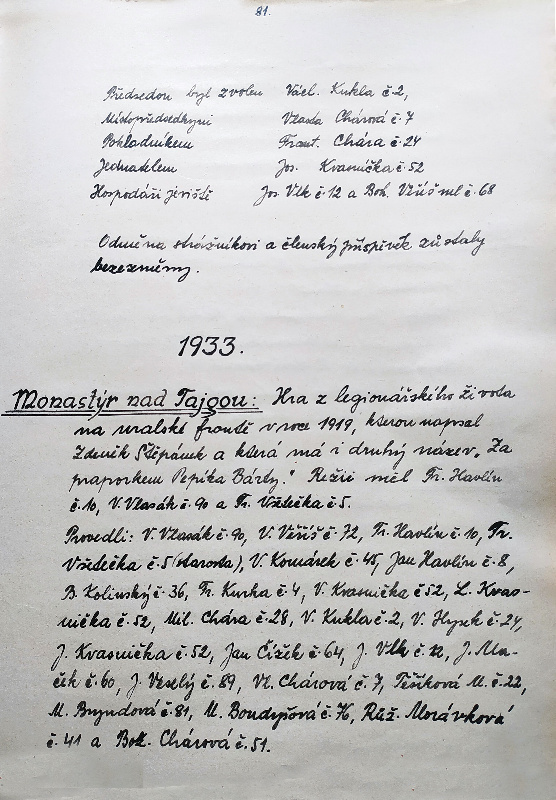 81.
Předsedou byl zvolen Václ. Kukla č.2,
Místopředsedkyní Vlasta Chárová č.7
Pokladníkem Frant. Chára č.24
Jednatelem Jos. Kvasnička č.52
Hospodáři jeviště Jos. Vlk č.12 a Boh. Věříš ml č.68
Odměna strážníkovi a členský příspěvek zůstaly
bezezměny.
1933.
Monastýr nad Tajgou: Hra z legionářského života
na uralské frontě v roce 1919, kterou napsal
Zdeněk Štěpánek a která má i druhý název „Za
praporkem Pepíka Bárty." Režii měl Fr. Havlín
č.10, V. Vlasák č.90 a Fr. Všetečka č.5.
Provedli: V. Vlasák č.90, V. Věříš č.72, Fr. Havlín č.10, Fr.
Všetečka č.5 (starosta), V. Komárek č.45, Jan Havlín č.8,
B. Kolinský č.36, Fr. Kurka č.4, V. Kvasnička č.52, L. Kvas-
nička č.52, Mil. Chára č.28, V. Kukla č.2, V. Hynek č.27,
J. Kvasnička č.52, Jan Čížek č.64, J. Vlk č.12, J. Ma-
ček č.60, J. Veselý č.89, Vl. Chárová č.7, Tešíková M. č.22,
M. Bryndová č.81, M. Boudyšová č.76, Růž. Morávková
č.41 a Bož. Chárová č.51.